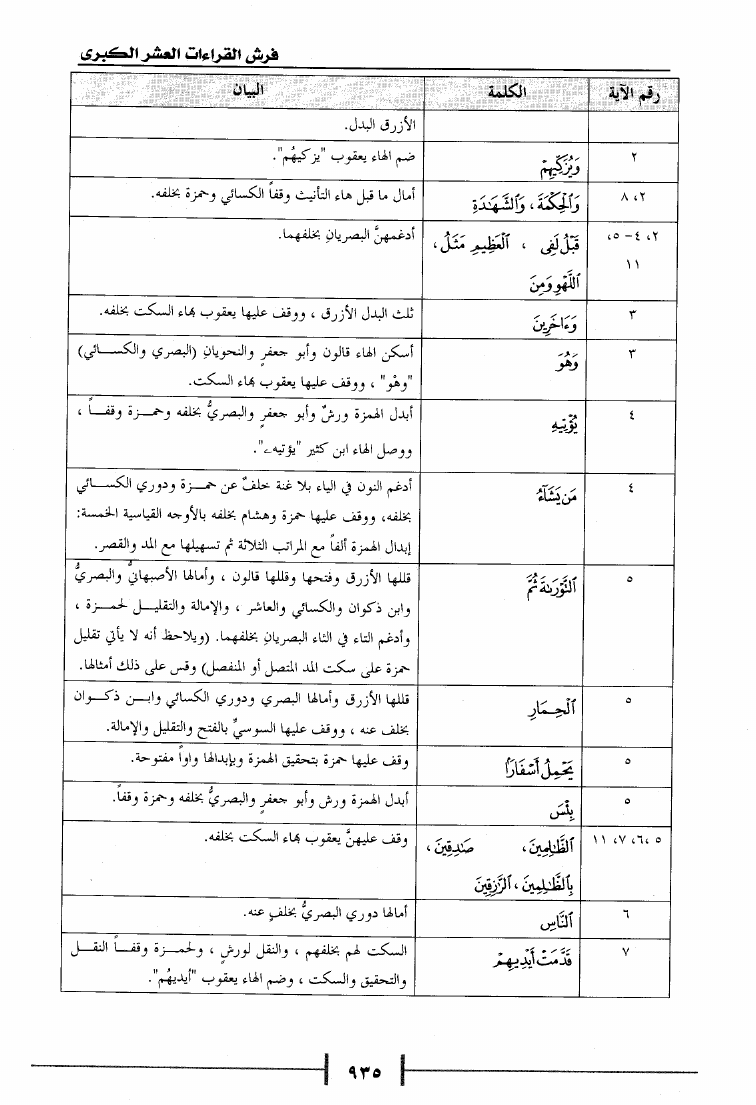 فرش القراءات العشر الكبرى
رقم الآية الكلمة البيان
الأزرق البدل.
٢ وَيُزَكِّيهِمْ ضم الهاء يعقوب "يزكيهُم".
٢، ٨ وَٱلْحِكْمَةَ، وَٱلشَّهَٰدَةِ أمال ما قبل هاء التأنيث وقفاً الكسائي وحمزة بخلفه.
٢، ٤ – ٥، قَبْلُ لَفِى ، ٱلْعَظِيمِ مَثَلُ، أدغمهنَّ البصريانِ بخلفهما.
١١
ٱللَّهْوِ وَمِنَ
٣ وَءَاخَرِينَ ثلث البدل الأزرق ، ووقف عليها يعقوب بهاء السكت بخلفه.
٣ وَهُوَ أسكن الهاء قالون وأبو جعفرٍ والنحويانِ (البصري والكسائي)
"وهْو" ، ووقف عليها يعقوب بهاء السكت.
٤ يُؤْتِيهِ أبدل الهمزة ورشٌ وأبو جعفرٍ والبصريُّ بخلفه وحمزة وقفاً ،
ووصل الهاء ابن كثير "يؤتيهے".
٤ مَن يَشَآءُ أدغم النون في الياء بلا غنة خلفٌ عن حمزة ودوري الكسائي
بخلفه، ووقف عليها حمزة وهشام بخلفه بالأوجه القياسية الخمسة:
إبدال الهمزة ألفاً مع المراتب الثلاثة ثم تسهيلها مع المد والقصر.
٥ ٱلتَّوْرَىٰةَ ثُمَّ قللها الأزرق وفتحها وقللها قالون ، وأمالها الأصبهانيُّ والبصريُّ
وابن ذكوان والكسائي والعاشر ، والإمالة والتقليل لحمزة ،
وأدغم التاء في الثاء البصريانِ بخلفهما. (ويلاحظ أنه لا يأتي تقليل
حمزة على سكت المد المتصل أو المنفصل) وقس على ذلك أمثالها.
٥ ٱلْحِمَارِ قللها الأزرق وأمالها البصري ودوري الكسائي وابن ذكوان
بخلف عنه ، ووقف عليها السوسيُّ بالفتح والتقليل والإمالة.
٥ يَحْمِلُ أَسْفَارًا وقف عليها حمزة بتحقيق الهمزة وبإبدالها واواً مفتوحة.
٥ بِئْسَ أبدل الهمزة ورش وأبو جعفرٍ والبصريُّ بخلفه وحمزة وقفاً.
٥، ٦، ٧، ١١ ٱلظَّٰلِمِينَ، صَٰدِقِينَ، وقف عليهنَّ يعقوب بهاء السكت بخلفه.
بِٱلظَّٰلِمِينَ، ٱلرَّٰزِقِينَ
٦ ٱلنَّاسِ أمالها دوري البصريُّ بخلفٍ عنه.
٧ قَدَّمَتْ أَيْدِيهِمْ السكت لهم بخلفهم ، والنقل لورشٍ ، ولحمزة وقفاً النقل
والتحقيق والسكت ، وضم الهاء يعقوب "أيديهُم".
٩٣٥